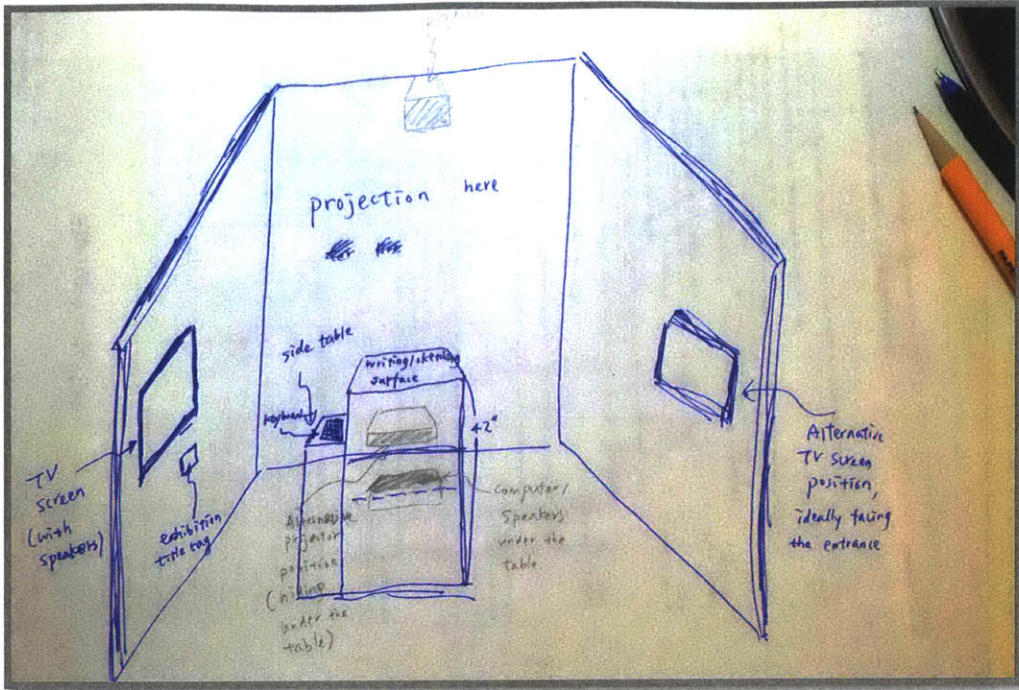 projection here
side table
writing/sketching
surface
keyboard
42"
TV
screen
(with
speakers)
exhibition
title tag
Alternative
projector
position
(hiding
under the
table)
computer/
speakers
under the
table
Alternative
TV screen
position,
ideally facing
the entrance